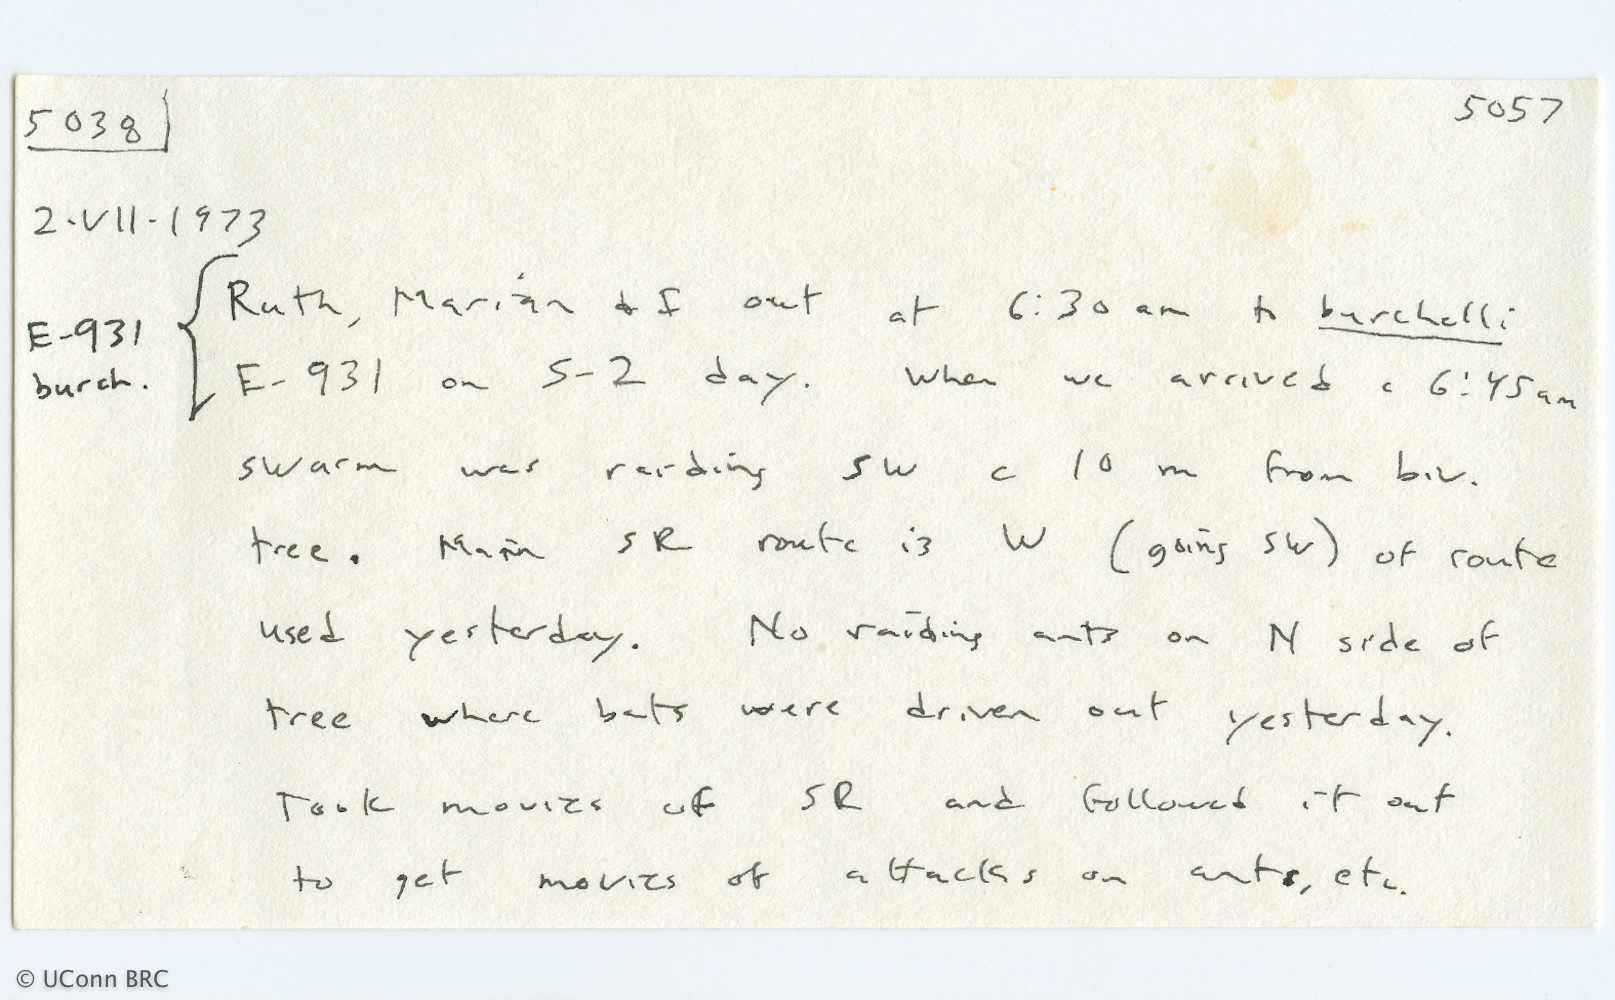 5038
5057
2·VII-1973
E-931
burch.
Ruth, Marian & I out at 6:30 am to burchelli
E-931 on S-2 day. When we arrived c 6:45am
swarm was raiding SW c 10 m from biv.
tree. Main SR route is W (going SW) of route
used yesterday. No raiding ants on N side of
tree where bats were driven out yesterday.
Took movies of SR and followed it out
to get movies of attacks on ants, etc.
© UConn BRC